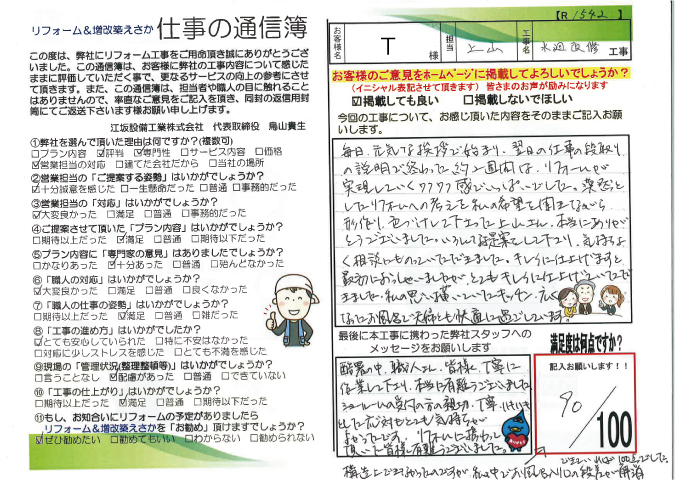 リフォーム&増改築えさか 仕事の通信簿
この度は、弊社にリフォーム工事をご用命頂き誠にありがとうござ
いました。この通信簿は、お客様に弊社の工事内容について感じた
ままに評価していただく事で、更なるサービスの向上の参考にさせ
て頂きます。また、この通信簿は、担当者や職人の目に触れること
はありませんので、率直なご意見をご記入を頂き、同封の返信用封
筒にてご返送下さいます様お願い申し上げます。
江坂設備工業株式会社 代表取締役 鳥山貴生
①弊社を選んで頂いた理由は何ですか?(複数可)
□プラン内容 ☑評判 ☑専門性 □サービス内容 □価格
☑営業担当の対応 □建てた会社だから □当社の場所
②営業担当の「ご提案する姿勢」はいかがでしょうか?
☑十分誠意を感じた □一生懸命だった □普通 □事務的だった
③営業担当の「対応」はいかがでしょうか?
☑大変良かった □満足 □普通 □事務的だった
④ご提案させて頂いた「プラン内容」はいかがでしょうか?
□期待以上だった ☑満足 □普通 □期待以下だった
⑤プラン内容に「専門家の意見」はありましたでしょうか?
□かなりあった ☑十分あった □普通 □殆んどなかった
⑥「職人の対応」はいかがでしょうか?
☑大変良かった □満足 □普通 □良くなかった
⑦「職人の仕事の姿勢」はいかがでしょうか?
□期待以上だった ☑満足 □普通 □雑だった
⑧「工事の進め方」はいかがでしたか?
☑とても安心していられた □特に不安はなかった
□対応に少しストレスを感じた □とても不満を感じた
⑨現場の「管理状況(整理整頓等)」はいかがでしょうか?
□言うことなし ☑配慮があった □普通 □できていない
⑩「工事の仕上がり」はいかがでしょうか?
□期待以上だった ☑満足 □普通 □期待以下だった
⑪もし、お知合いにリフォームの予定がありましたら
リフォーム&増改築えさかを「お勧め」頂けますでしょうか?
☑ぜひ勧めたい □勧めてもいい □わからない □勧められない
【R 1542 】
お客様名 T 様 担当 上山 工事名 水廻改修 工事
お客様のご意見をホームページに掲載してよろしいでしょうか?
(イニシャル表記させて頂きます) 皆さまのお声が励みになります
☑掲載しても良い □掲載しないでほしい
今回の工事について、お感じ頂いた内容をそのままご記入お願
いします。
毎日、元気な挨拶で始まり、翌日の仕事の段取り
の説明で終わった約2週間は、リフォームが
実現していくワクワク感でいっぱいでした。漠然と
したリフォームへの考えを私の希望を聞きながら
形作り、色づけして下さった上山さん、本当にありがと
うございました。いろいろな提案をして下さり、気持ちよ
く相談にものっていただきました。キレイに仕上げますと
最初におっしゃいましたが、とてもキレイに仕上げていただ
きました。私の思い描いていたキッチン、広く
なったお風呂で夫婦とも快適に過ごしています。
最後に本工事に携わった弊社スタッフへの
メッセージをお願いします
酷暑の中、職人さん、皆様、丁寧に
作業して下さり、本当に有難うございました。
ショールームの受付の方の親切、丁寧、
した応対もとても気持ちが
よかったです。リフォームに携わって
頂いた皆様に有難うございました。
満足度は何点ですか?
記入お願いします!!
90/100
できていれば100点でした。
構造上できなかったのですが